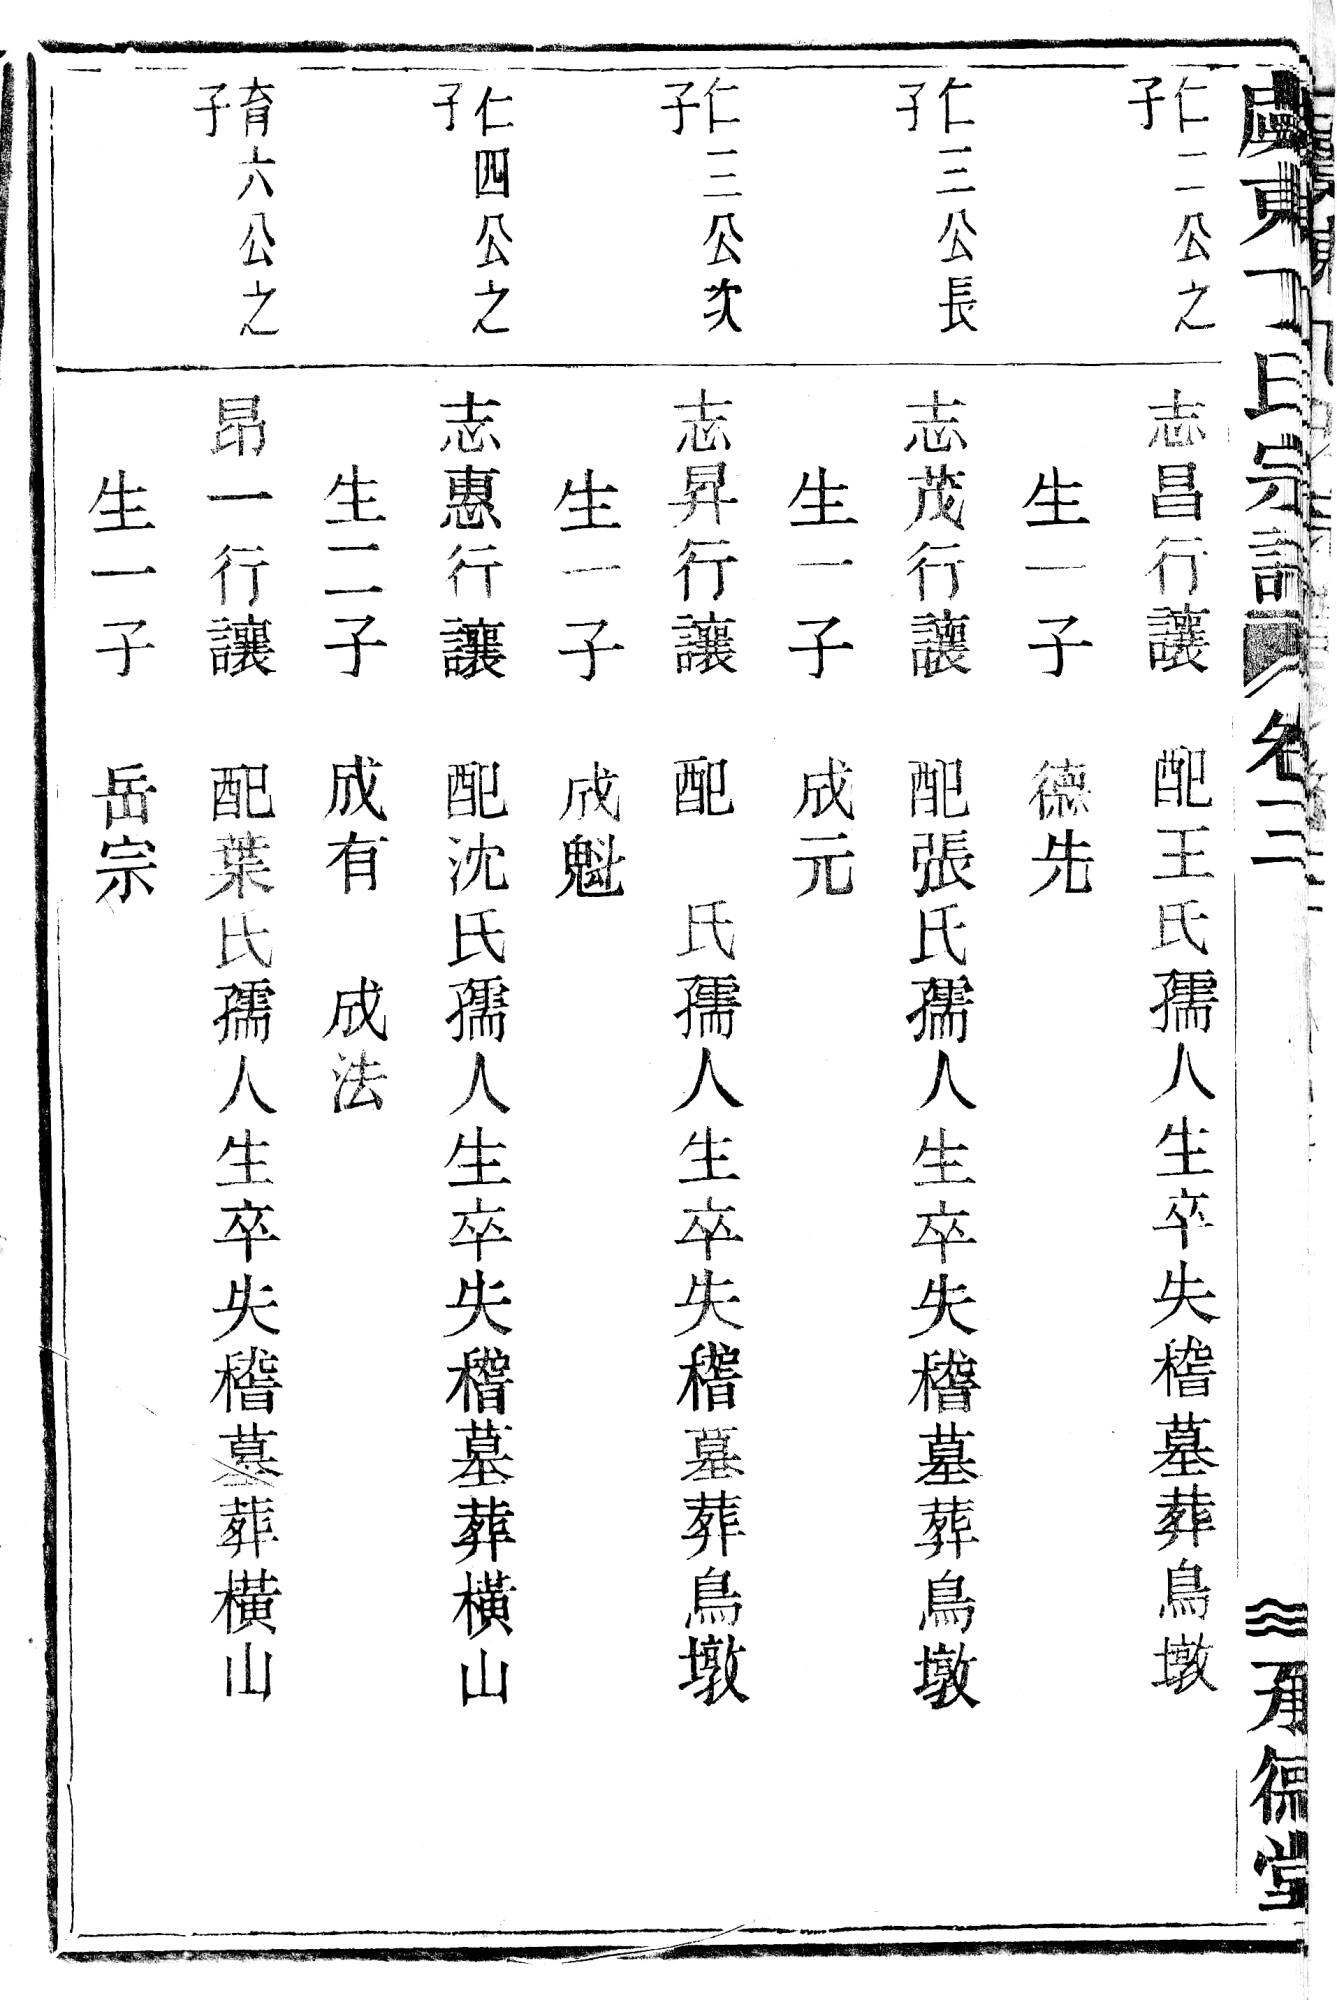 虞東丁氏宗譜 卷二 承德堂
仁二公之
子
志昌行讓 配王氏孺人生卒失稽墓葬鳥墩
生一子 德先
仁三公長
子
志茂行讓 配張氏孺人生卒失稽墓葬鳥墩
生一子 成元
仁三公次
子
志昇行讓 配 氏孺人生卒失稽墓葬鳥墩
生一子 成魁
仁四公之
子
志惠行讓 配沈氏孺人生卒失稽墓葬橫山
生二子 成有 成法
育六公之
子
昂一行讓 配葉氏孺人生卒失稽墓葬橫山
生一子 岳宗